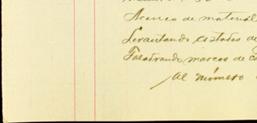 Acerca de material
Levantando estados de
Taladrando marcos de
Al número